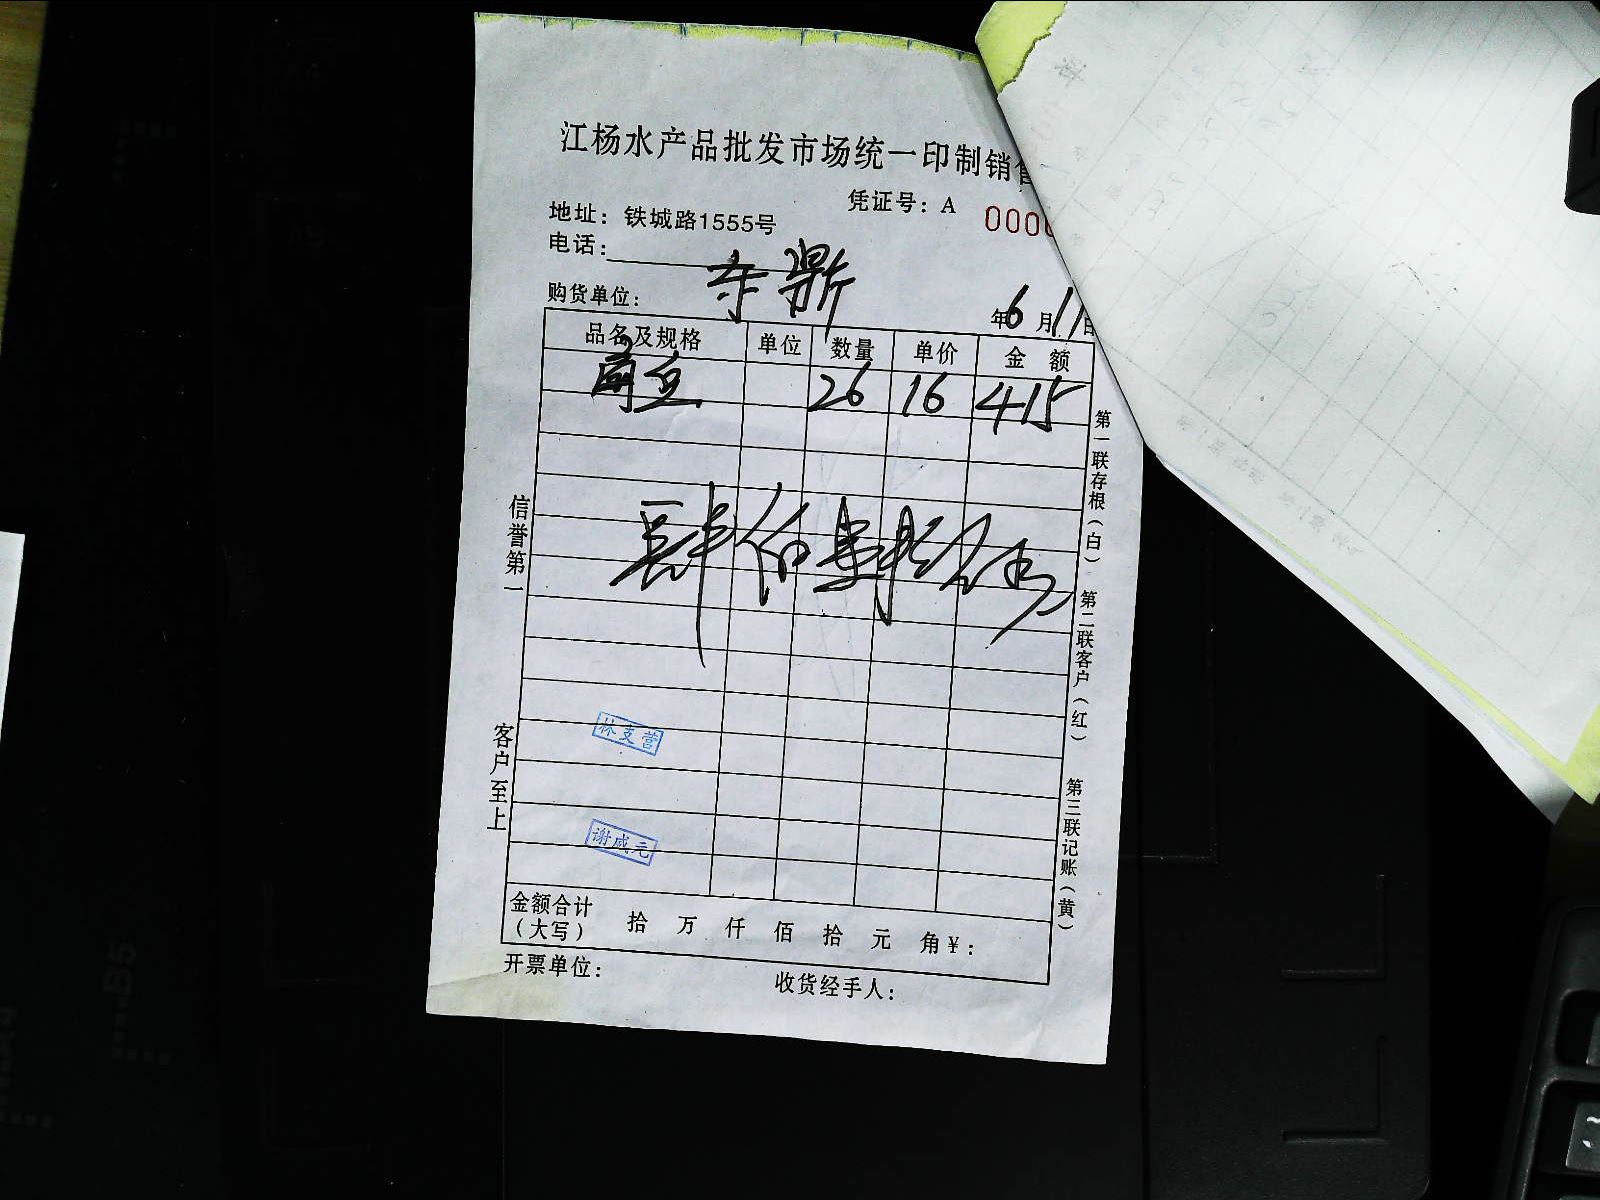 江杨水产品批发市场统一印制销售
凭证号：A 000
地址：铁城路1555号
电话：
购货单位： 东鼎
年6月11日
品名及规格 单位 数量 单价 金额
26 16 415
肆佰
第一联存根（白）
第二联客户（红）
第三联记账（黄）
信誉第一
客户至上
林支营
谢成元
金额合计（大写） 拾 万 仟 佰 拾 元 角 ¥：
开票单位：
收货经手人：
B5